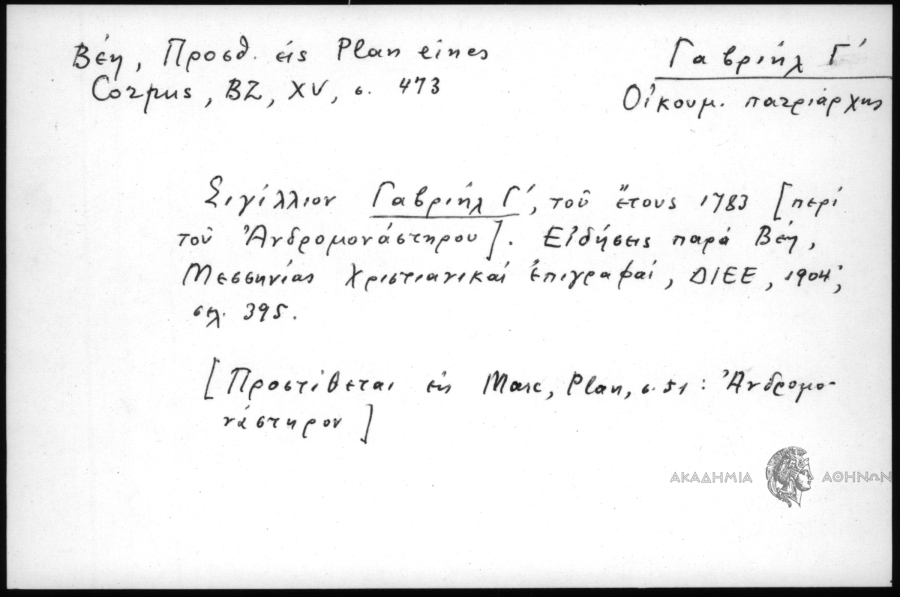 Βέη, Προσθ. εἰς Plan eines
Corpus, BZ, XV, σ. 473
Γαβριήλ Γ΄
Οἰκουμ. πατριάρχης
Σιγίλλιον Γαβριήλ Γ΄, τοῦ ἔτους 1783 [περί
τοῦ Ἀνδρομονάστηρου]. Εἰδήσεις παρά Βέη,
Μεσσηνίας Χριστιανικαί ἐπιγραφαί, ΔΙΕΕ, 1904,
σελ. 395.
[Προστίθεται εἰς Marc, Plan, σ. 51: Ἀνδρομο-
νάστηρον]
ΑΚΑΔΗΜΙΑ ΑΘΗΝΩΝ